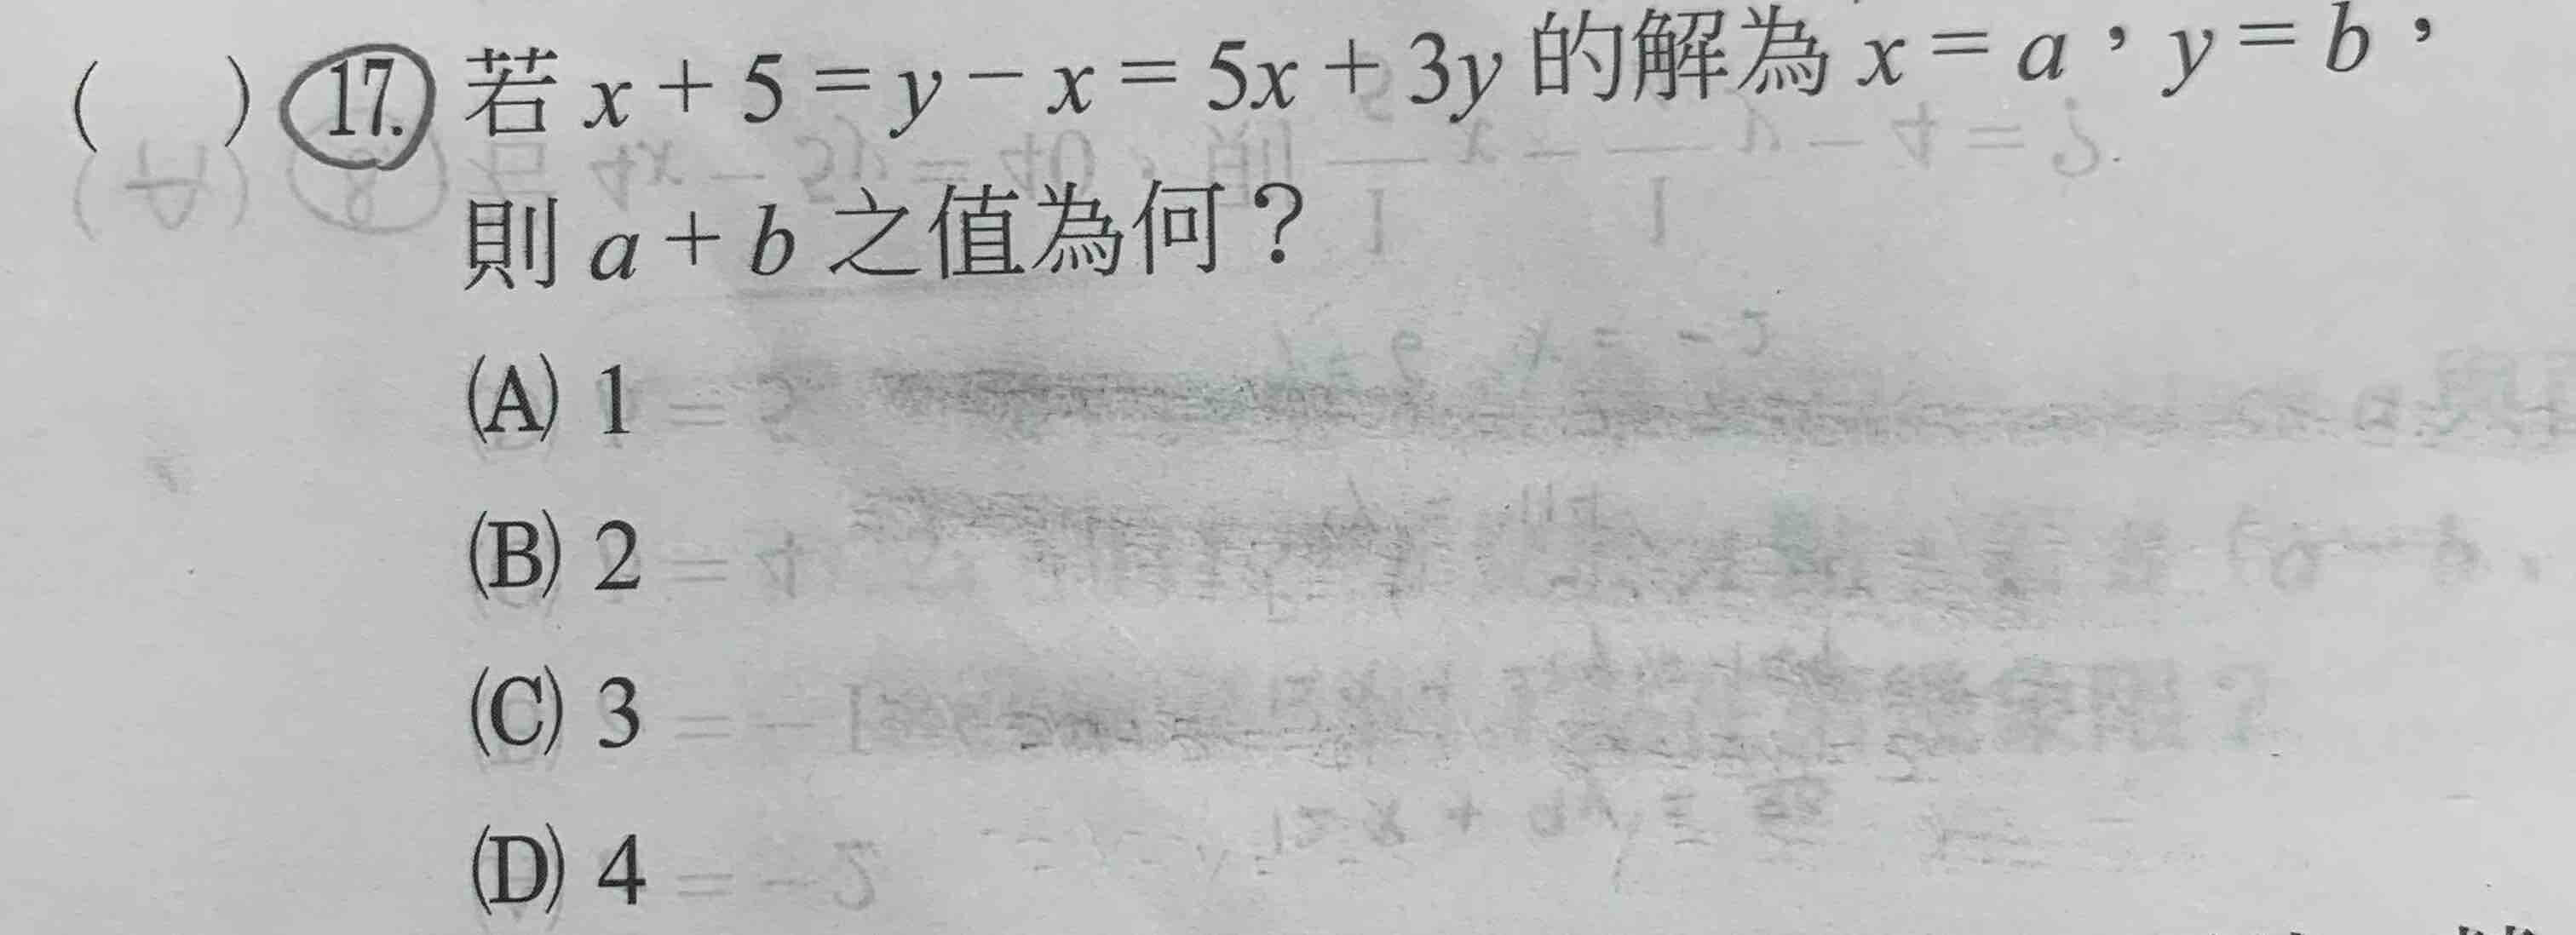 (　) 17. 若 x + 5 = y − x = 5x + 3y 的解為 x = a，y = b，
則 a + b 之值為何？
(A) 1
(B) 2
(C) 3
(D) 4